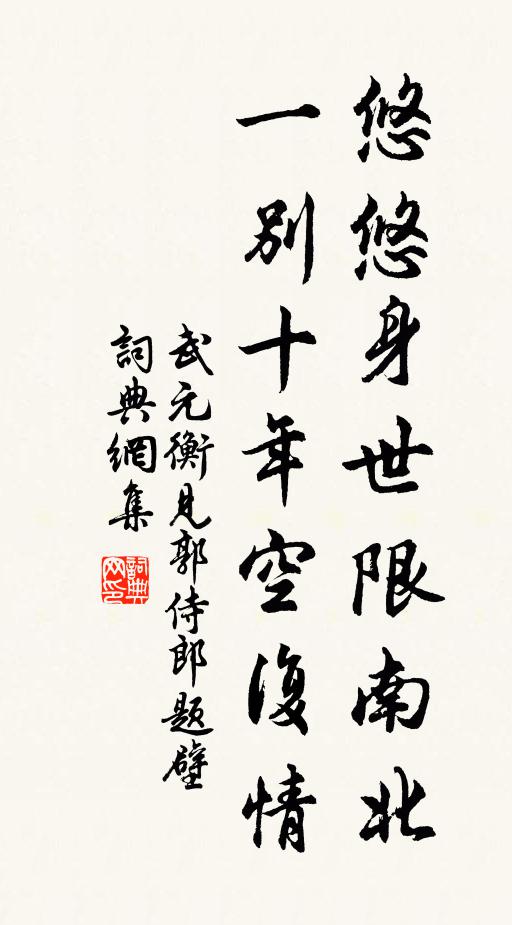 悠悠身世限南北
一別十年空復情
武元衡見郭侍郎題壁
詞典網集
詞典网印